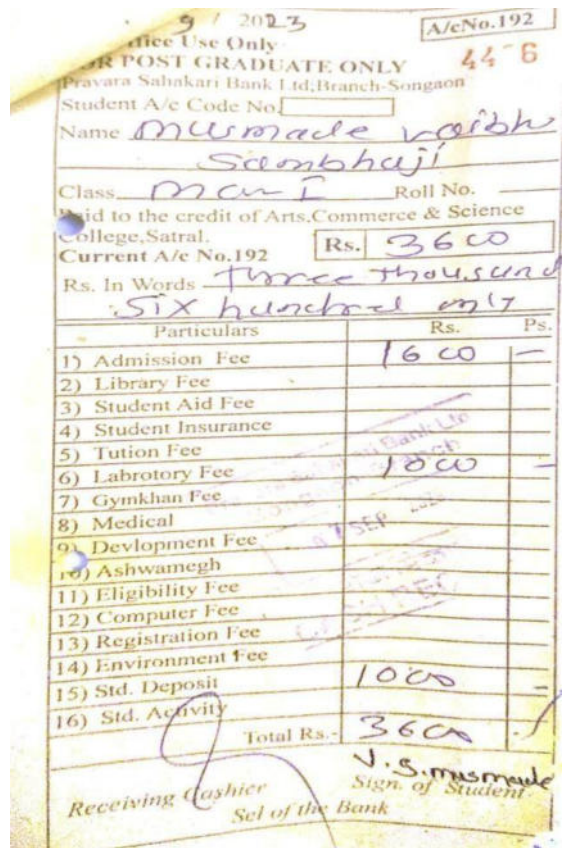 9 / 2023
A/cNo.192
ffice Use Only
44 6
R POST GRADUATE ONLY
Pravara Sahakari Bank Ltd;Branch-Songaon
Student A/c Code No.
Name Musmade vaibh
Sambhaji
Class Roll No.
Paid to the credit of Arts.Commerce & Science
College,Satral.
Current A/c No.192 Rs. 3600
Rs. In Words Three thousand
SIX hundred only
Particulars Rs. Ps.
1) Admission Fee 1600 —
2) Library Fee
3) Student Aid Fee
4) Student Insurance
5) Tution Fee
6) Labrotory Fee 1000 -
7) Gymkhan Fee
8) Medical
9) Devlopment Fee
10) Ashwamegh
11) Eligibility Fee
12) Computer Fee
13) Registration Fee
14) Environment Fee
15) Std. Deposit 1000 -
16) Std. Activity
Total Rs.- 3600
Bank Ltd
SEP
V.S.musmade
Receiving Cashier Sign. of Student
Sel of the Bank